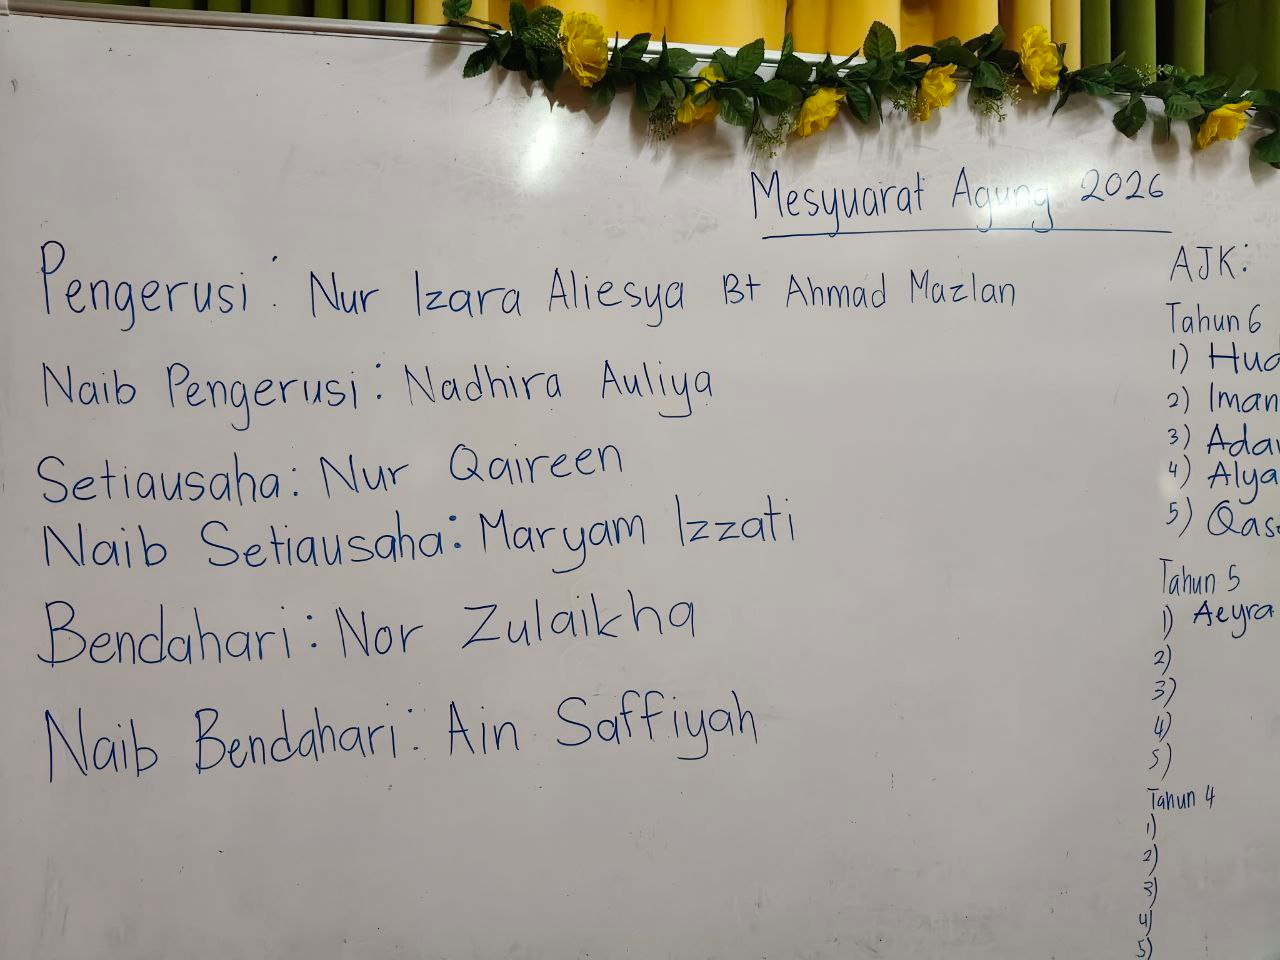 Mesyuarat Agung 2026
Pengerusi : Nur Izara Aliesya Bt Ahmad Mazlan
Naib Pengerusi : Nadhira Auliya
Setiausaha : Nur Qaireen
Naib Setiausaha : Maryam Izzati
Bendahari : Nor Zulaikha
Naib Bendahari : Ain Saffiyah
AJK :
Tahun 6
1)
2) Iman
3)
4) Alya
5)
Tahun 5
1) Aeyra
2)
3)
4)
5)
Tahun 4
1)
2)
3)
4)
5)